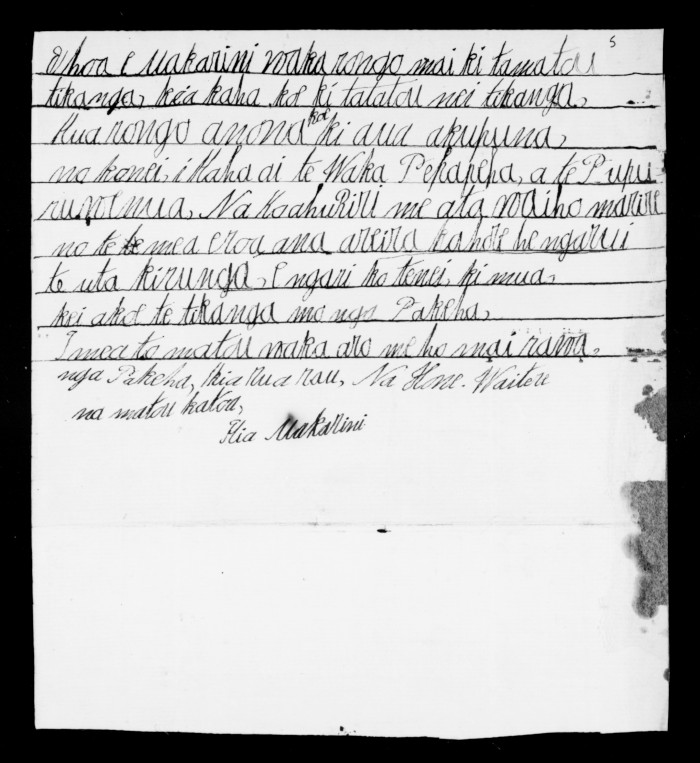 5
E hoa e Makarini waka rongo mai ki tamatou
tikanga, kia kaha koe ki tatatou nei tikanga,
Kua rongo anona koe ki aua akupuna,
no konei, i Kaha ai te Waka Pekapeha, a te Pupu
ruwenua, Na Kaahu Riri me ata waiho marire
no te mea eroa ana areira kahore he ngarui
te uta kirunga, e ngari ko tenei, ki mua,
kei akoe te tikanga mo nga Pakeha,
I mea to matou waka aro me ho mai rawa,
nga Pakeha, kia rua rau, Na Hone. Waitere
na matou katou,
Kia Makarini